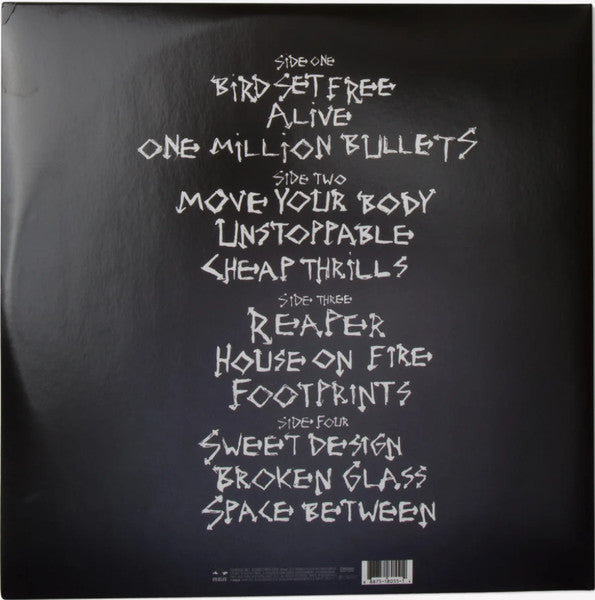 SIDE ONE
BIRD SET FREE
ALIVE
ONE MILLION BULLETS
SIDE TWO
MOVE YOUR BODY
UNSTOPPABLE
CHEAP THRILLS
SIDE THREE
REAPER
HOUSE ON FIRE
FOOTPRINTS
SIDE FOUR
SWEET DESIGN
BROKEN GLASS
SPACE BETWEEN
RCA